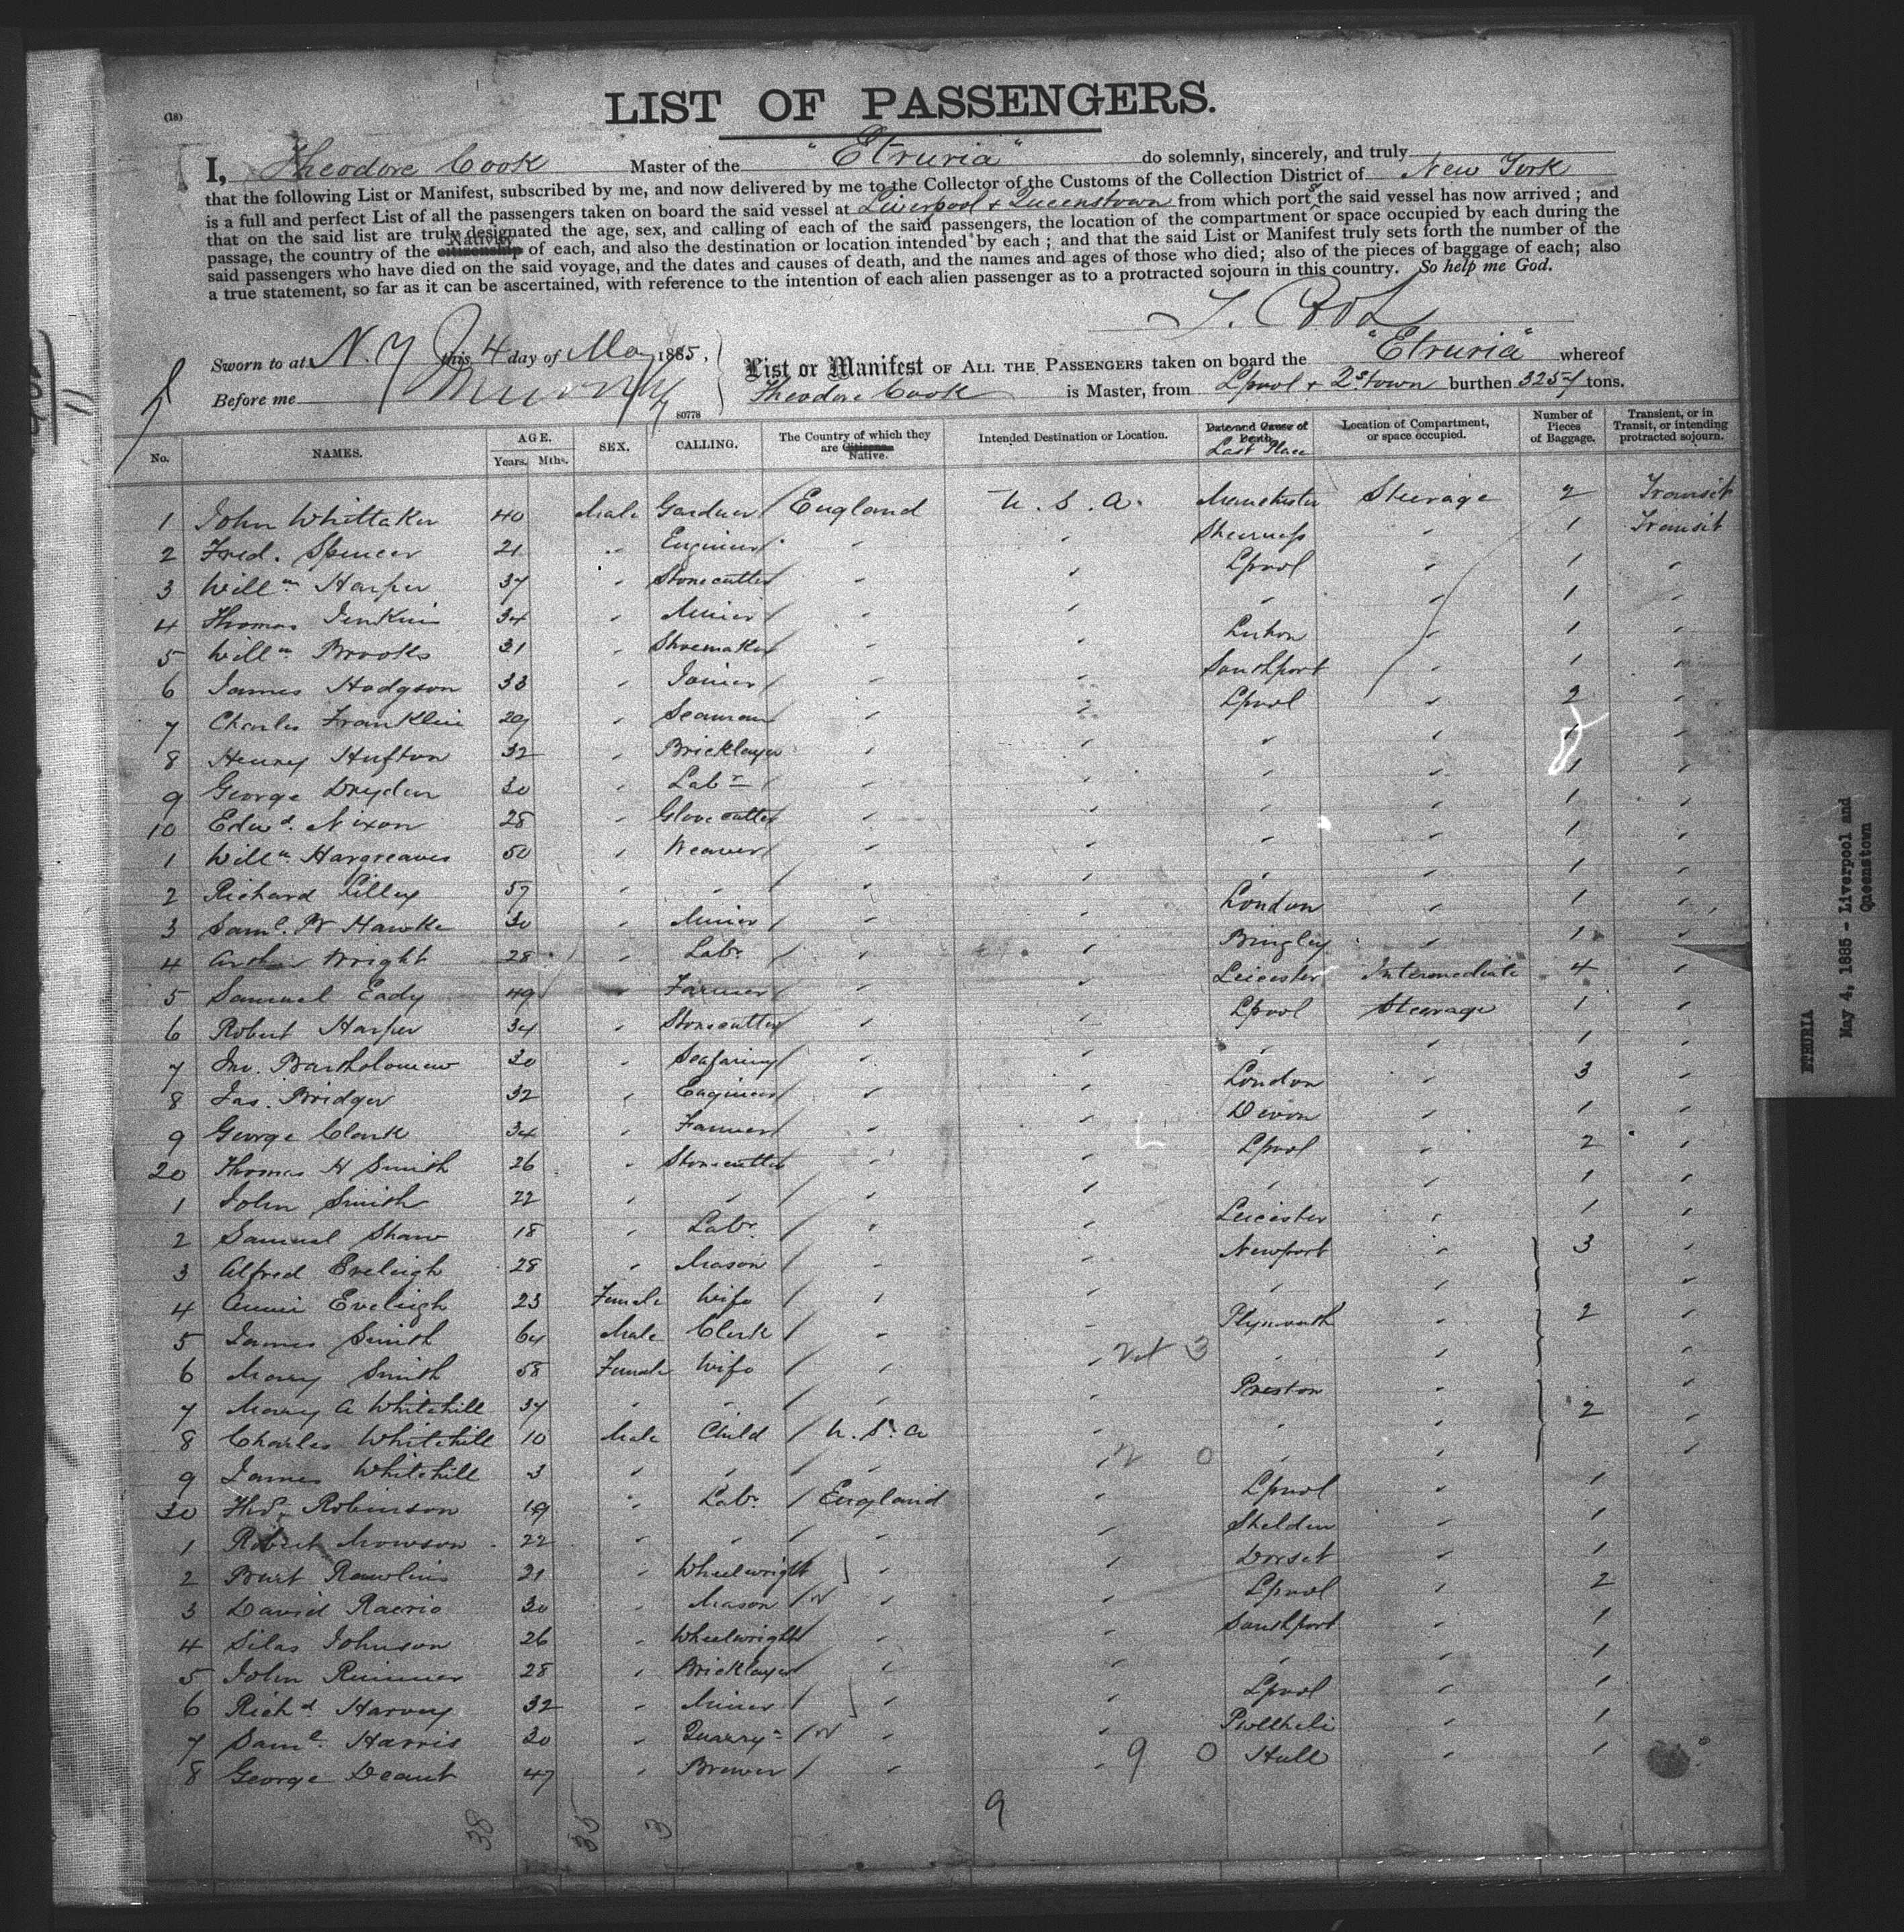 (18)
LIST OF PASSENGERS.
I, Theodore Cook Master of the "Etruria" do solemnly, sincerely, and truly
that the following List or Manifest, subscribed by me, and now delivered by me to the Collector of the Customs of the Collection District of New York
is a full and perfect List of all the passengers taken on board the said vessel at Liverpool & Queenstown from which port s the said vessel has now arrived; and
that on the said list are truly designated the age, sex, and calling of each of the said passengers, the location of the compartment or space occupied by each during the
passage, the country of the citizenship Nativity of each, and also the destination or location intended by each; and that the said List or Manifest truly sets forth the number of the
said passengers who have died on the said voyage, and the dates and causes of death, and the names and ages of those who died; also of the pieces of baggage of each; also
a true statement, so far as it can be ascertained, with reference to the intention of each alien passenger as to a protracted sojourn in this country. So help me God.
T. Cook
Sworn to at N. Y this 4 day of May 1885,
Before me
List or Manifest OF ALL THE PASSENGERS taken on board the "Etruria" whereof
Theodore Cook is Master, from Lpool & Qstown burthen 3257 tons.
80778
No. NAMES. AGE. Years. Mths. SEX. CALLING. The Country of which they are Citizens Native. Intended Destination or Location. Date and Cause of Death. Last Place Location of Compartment, or space occupied. Number of Pieces of Baggage. Transient, or in Transit, or intending protracted sojourn.
1 John Whittaker 40 Male Gardner / England U. S. A. Manchester Steerage 2 Transit
2 Fred. Spencer 21 " Engineer / " " Sheerness " 1 Transit
3 Willm Harper 37 " Stonecutter / " " Lpool " 1 "
4 Thomas Jenkin 34 " Miner / " " " " 1 "
5 Willm Brooks 31 " Shoemaker / " " Luton " 1 "
6 James Hodgson 33 " Joiner / " " Southport " 1 "
7 Charles Franklin 29 " Seaman / " " Lpool " 2 "
8 Henry Hufton 32 " Bricklayer " " " " 1 "
9 George Dryden 30 " Labr / " " " " 1 "
10 Edwd. Nixon 28 " Glove cutter / " " " " 1 "
1 Willm Hargreaves 50 " Weaver / " " " " 1 "
2 Richard Lilley 57 " " / " " " " 1 "
3 Saml. W Hawke 30 " Miner / " " London " 1 "
4 Arthur Wright 28 " Labr / " " Bingley " 1 "
5 Samuel Eady 49 " Farmer / " " Leicester Intermediate 4 "
6 Robert Harper 34 " Stonecutter / " " Lpool Steerage 1 "
7 Jno. Bartholomew 30 " Seafaring / " " " " 1 "
8 Jas. Bridger 32 " Engineer / " " London " 3 "
9 George Clark 34 " Farmer / " " Devon " 1 "
20 Thomas H Smith 26 " Stonecutter " " Lpool " 2 "
1 John Smith 22 " " / " " " " 1 "
2 Samuel Shaw 18 " Labr / " " Leicester " 1 "
3 Alfred Eveleigh 28 " Mason / " " Newport " 3 "
4 Annie Eveleigh 23 Female Wife / " " " " "
5 James Smith 64 Male Clerk / " " Plymouth " 2 "
6 Mary Smith 58 Female Wife / " " 3 " " "
7 Mary A Whitehill 37 " " / " " Preston " 2 "
8 Charles Whitehill 10 Male Child / U. S. A " " " "
9 James Whitehill 3 " " / " " 0 " " "
30 Robinson 19 " Labr / England " Lpool " 1
1 Robert Mowson 22 " " / " " Shelden " 1
2 Burt Rawlins 21 " Wheelwright / " " Dorset " 1
3 David 30 " Mason / " " Lpool " 2
4 Silas Johnson 26 " Wheelwright / " " Southport " 1
5 John Rimmer 28 " Bricklayer / " " " " 1
6 Richd Harvey 32 " Miner / " " Lpool " 1
7 Saml. Harris 30 " Quarryn / " " Pwllheli " 1
8 George Deant 47 " Brewer / " " 9 0 Hull " 1
38 35 3 9
ETRURIA
May 4, 1885 - Liverpool and
Queenstown